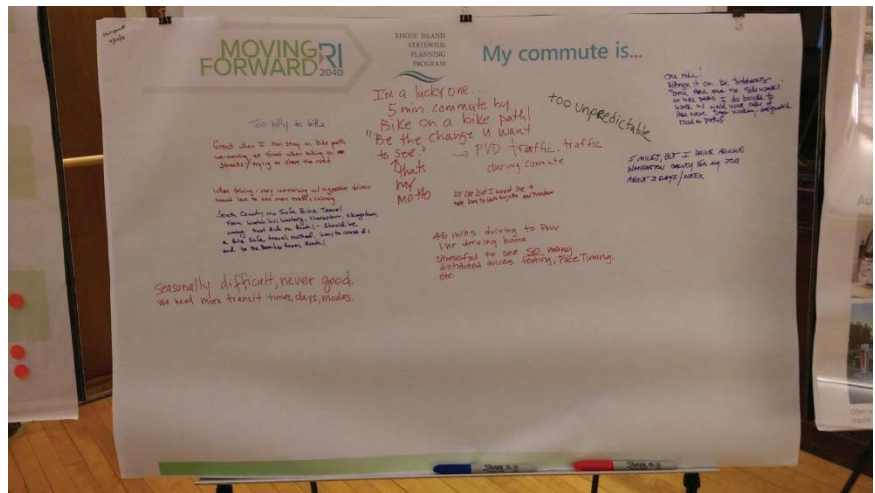 MOVING
FORWARD RI
2040
RHODE ISLAND
STATEWIDE
PLANNING
PROGRAM
My commute is...
Too hilly to bike
Great when I can stay on bike path
un-nerving at times when biking on
streets/trying to share the road
When driving - very un-nerving w/ aggressive drivers
would love to see more traffic calming
South County NW Safe Bike Travel
From Watch hill Westerly, Charlestown,
must Ride on Route 1 - Should be
a Bike Safe travel method. Way to cross Rt 1
and to the Beaches from Route 1
Seasonally difficult, never good.
We need more transit times, days, modes.
I'm a lucky one...
5 min commute by
Bike on a bike path!
"Be the change u want
to see."
↑ thats
my
motto
→ PVD traffic, traffic
during commute
by car but I would love to
take bus to North Kingstown and Providence
45 mins driving to Prov
1 hr driving home
Stressful to see SO many
distracted drivers texting, FaceTiming,
etc.
too unpredictable
One mile!
Although it can be
and there are no sidewalks
or bike paths I do bicycle to
work or walk
there were safe walking
road or paths.
5 MILES, BUT I DRIVE AROUND
WASHINGTON COUNTY FOR MY JOB
ABOUT 2 DAYS/WEEK
Sharpie
Sharpie